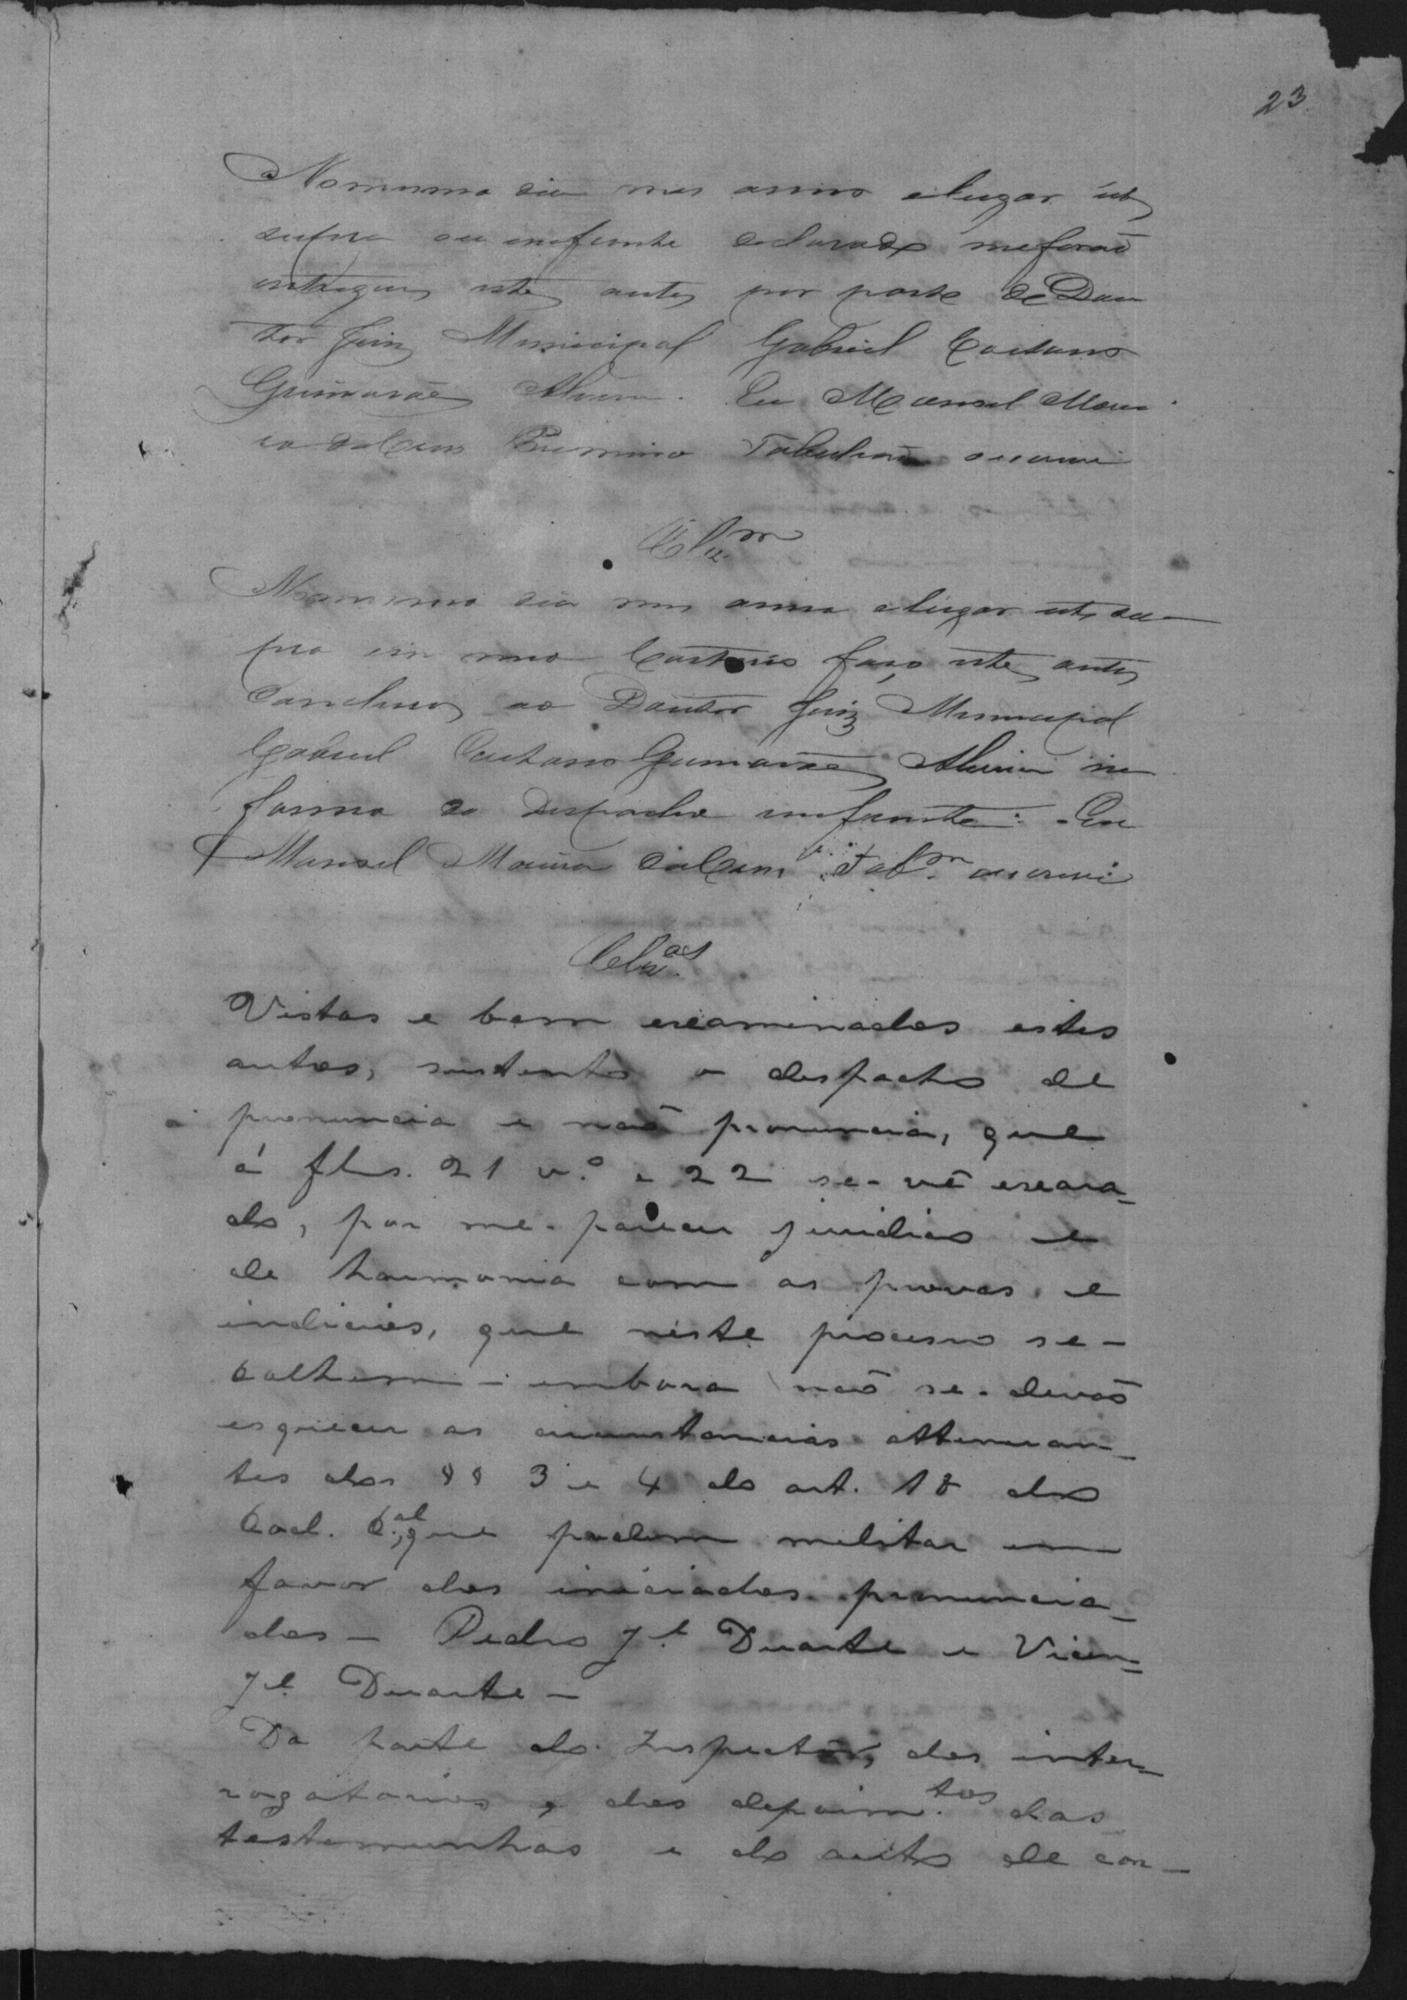 23
No mesmo dia mes anno e lugar ut
supra ou emfrente declarado me forão
entregues estes autos por parte do Dou
tor Juiz Municipal Gabriel Caetano
Guimarães Alvim. Eu Manoel Mari
a da Cruz Tabelião escrevi
Clz.m
No mesmo dia mes anno e lugar ut su-
pra em meo Cartorio faço estes autos
Conclusos ao Doutor Juiz Municipal
Gabriel Caetano Guimarães Alvim na
forma do despacho emfrente. Eu
Manoel Maria da Cruz Tab.m escrevi
Clz.os
Vistos e bem examinados estes
autos, sustento o despacho de
pronuncia e não pronuncia, que
á fls. 21 v.º e 22 se-vê exara-
do, por me-parecer juridico e
de harmonia com as provas e
indicios, que neste processo se-
colhem - embora não se-devão
esquecer as circunstancias attenuan-
tes dos §§ 3 e 4 do art. 18 do
Cod. C.al, que podem militar em
favor dos iniciados pronuncia-
dos - Pedro J.e Duarte e Vicen-
J.e Duarte -
Da parte do Inspector, dos inter-
rogatorios, e dos depoim.tos das
testemunhas e do auto de cor-